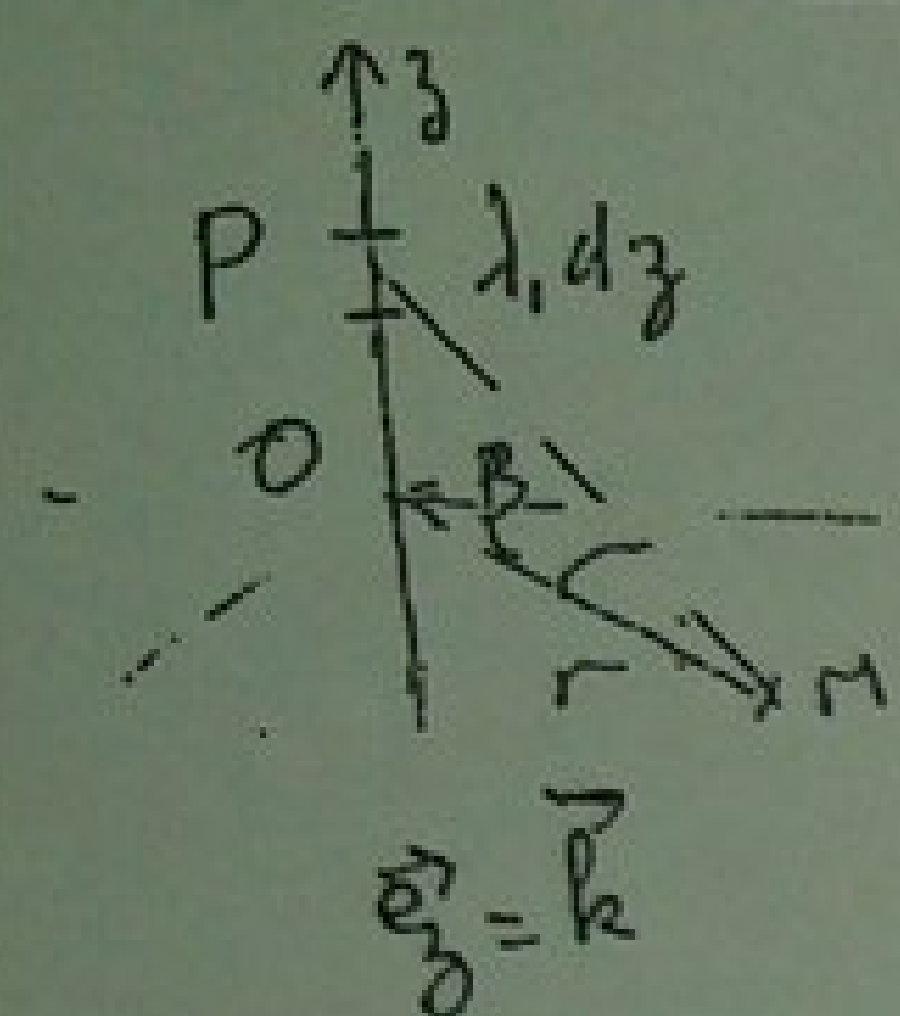 z
P λ, dz
O
B
r M
e⃗z = k⃗